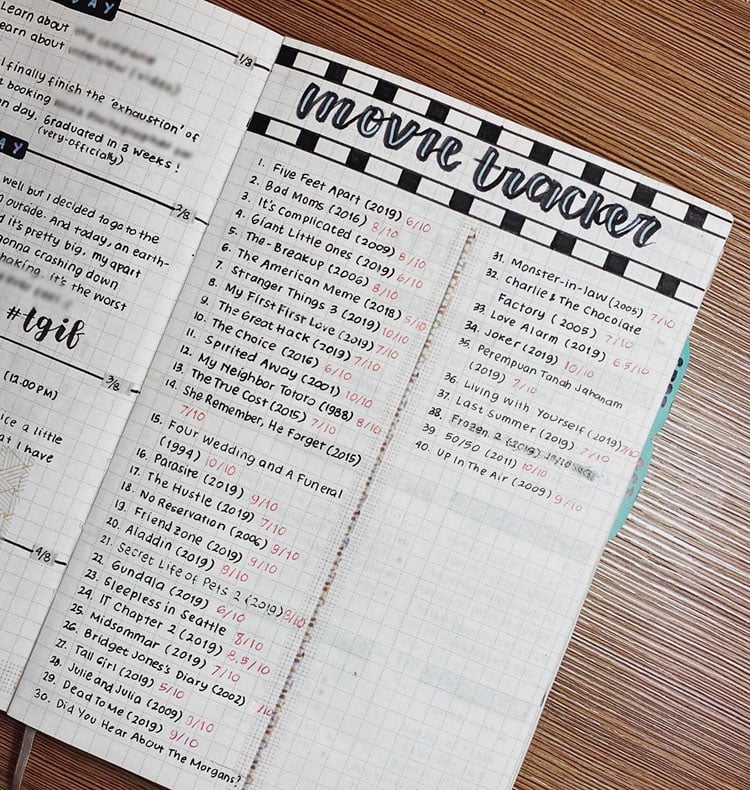 AY
Learn about
earn about
1/8
I finally finish the 'exhaustion' of
booking
n day. Graduated in 3 weeks!
(very-officially)
AY
2/8
well but I decided to go to the
outside. And today, an earth-
d it's pretty big, my apart
gonna crashing down
haking. it's the worst
#tgif
3/8
(12.00PM)
ice a little
at I have
4/8
movie tracker
1. Five Feet Apart (2019) 6/10
2. Bad Moms (2016) 8/10
3. It's Complicated (2009) 8/10
4. Giant Little Ones (2019) 6/10
5. The-Breakup (2006) 8/10
6. The American Meme (2018)
7. Stranger Things 3 (2019) 10/10
8. My First First Love (2019) 7/10
9. The Great Hack (2019) 7/10
10. The Choice (2016) 6/10
11. Spirited Away (2001) 10/10
12. My Neighbor Totoro (1988) 8/10
13. The True Cost (2015) 7/10
14. She Remember, He Forget (2015)
7/10
15. Four Wedding and A Funeral
(1994) 10/10
16. Parasite (2019) 9/10
17. The Hustle (2019) 7/10
18. No Reservation (2006) 9/10
19. Friend Zone (2019) 9/10
20. Aladdin (2019) 9/10
21. Secret Life of Pets 2 (2019) 9/10
22. Gundala (2019) 6/10
23. Sleepless in Seattle 8/10
24. IT Chapter 2 (2019) 8.5/10
25. Midsommar (2019) 7/10
26. Bridget Jones's Diary (2002)
27. Tall Girl (2019) 5/10
28. Julie and Julia (2009) 9/10
29. Dead To Me (2019) 9/10
30. Did You Hear About The Morgans?
31. Monster-in-law (2005) 7/10
32. Charlie & The Chocolate
Factory (2005) 7/10
33. Love Alarm (2019) 6.5/10
34. Joker (2019) 10/10
35. Perempuan Tanah Jahanam
(2019) 7/10
36. Living with Yourself (2019) 7/10
37. Last Summer (2019) 7/10
38. Frozen 2 (2019)
39. 50/50 (2011) 10/10
40. Up In The Air (2009) 9/10